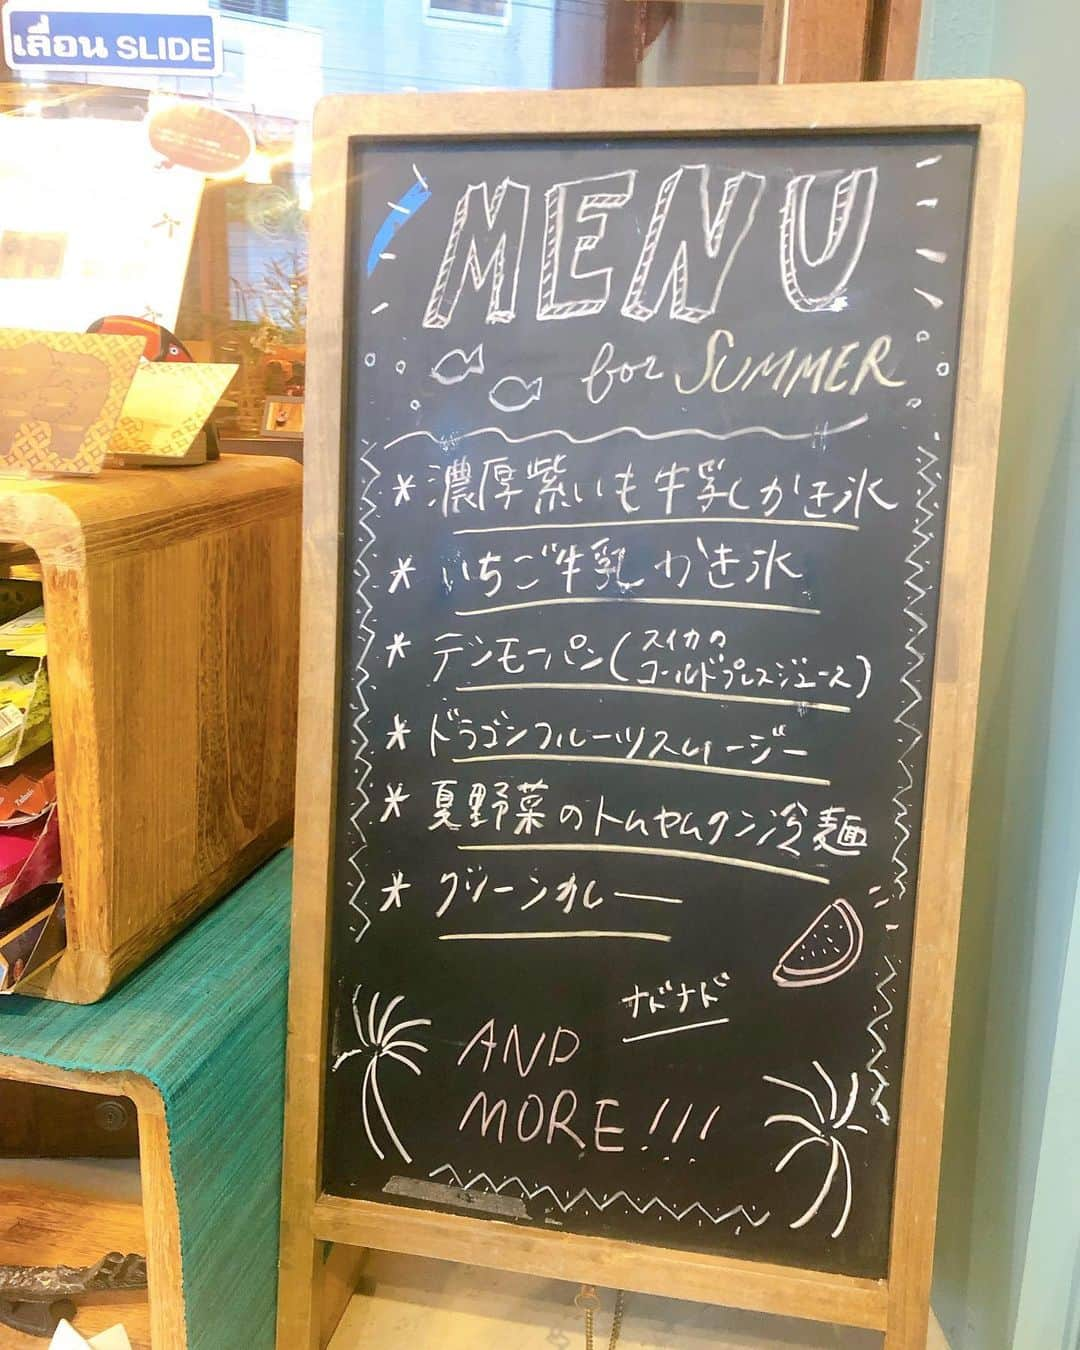 เลื่อน SLIDE
MENU
for SUMMER
* 濃厚紫いも牛乳かき氷
* いちご牛乳かき氷
* テンモーパン(スイカのコールドプレスジュース)
* ドラゴンフルーツスムージー
* 夏野菜のトムヤムクン冷麺
* グリーンカレー
ナドナド
AND
MORE!!!